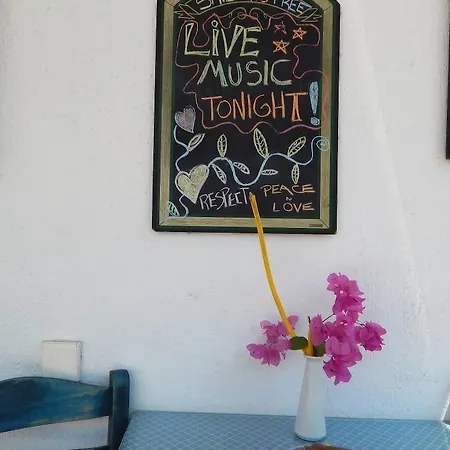 LIVE
MUSIC
TONIGHT!
RESPECT
PEACE
N
LOVE